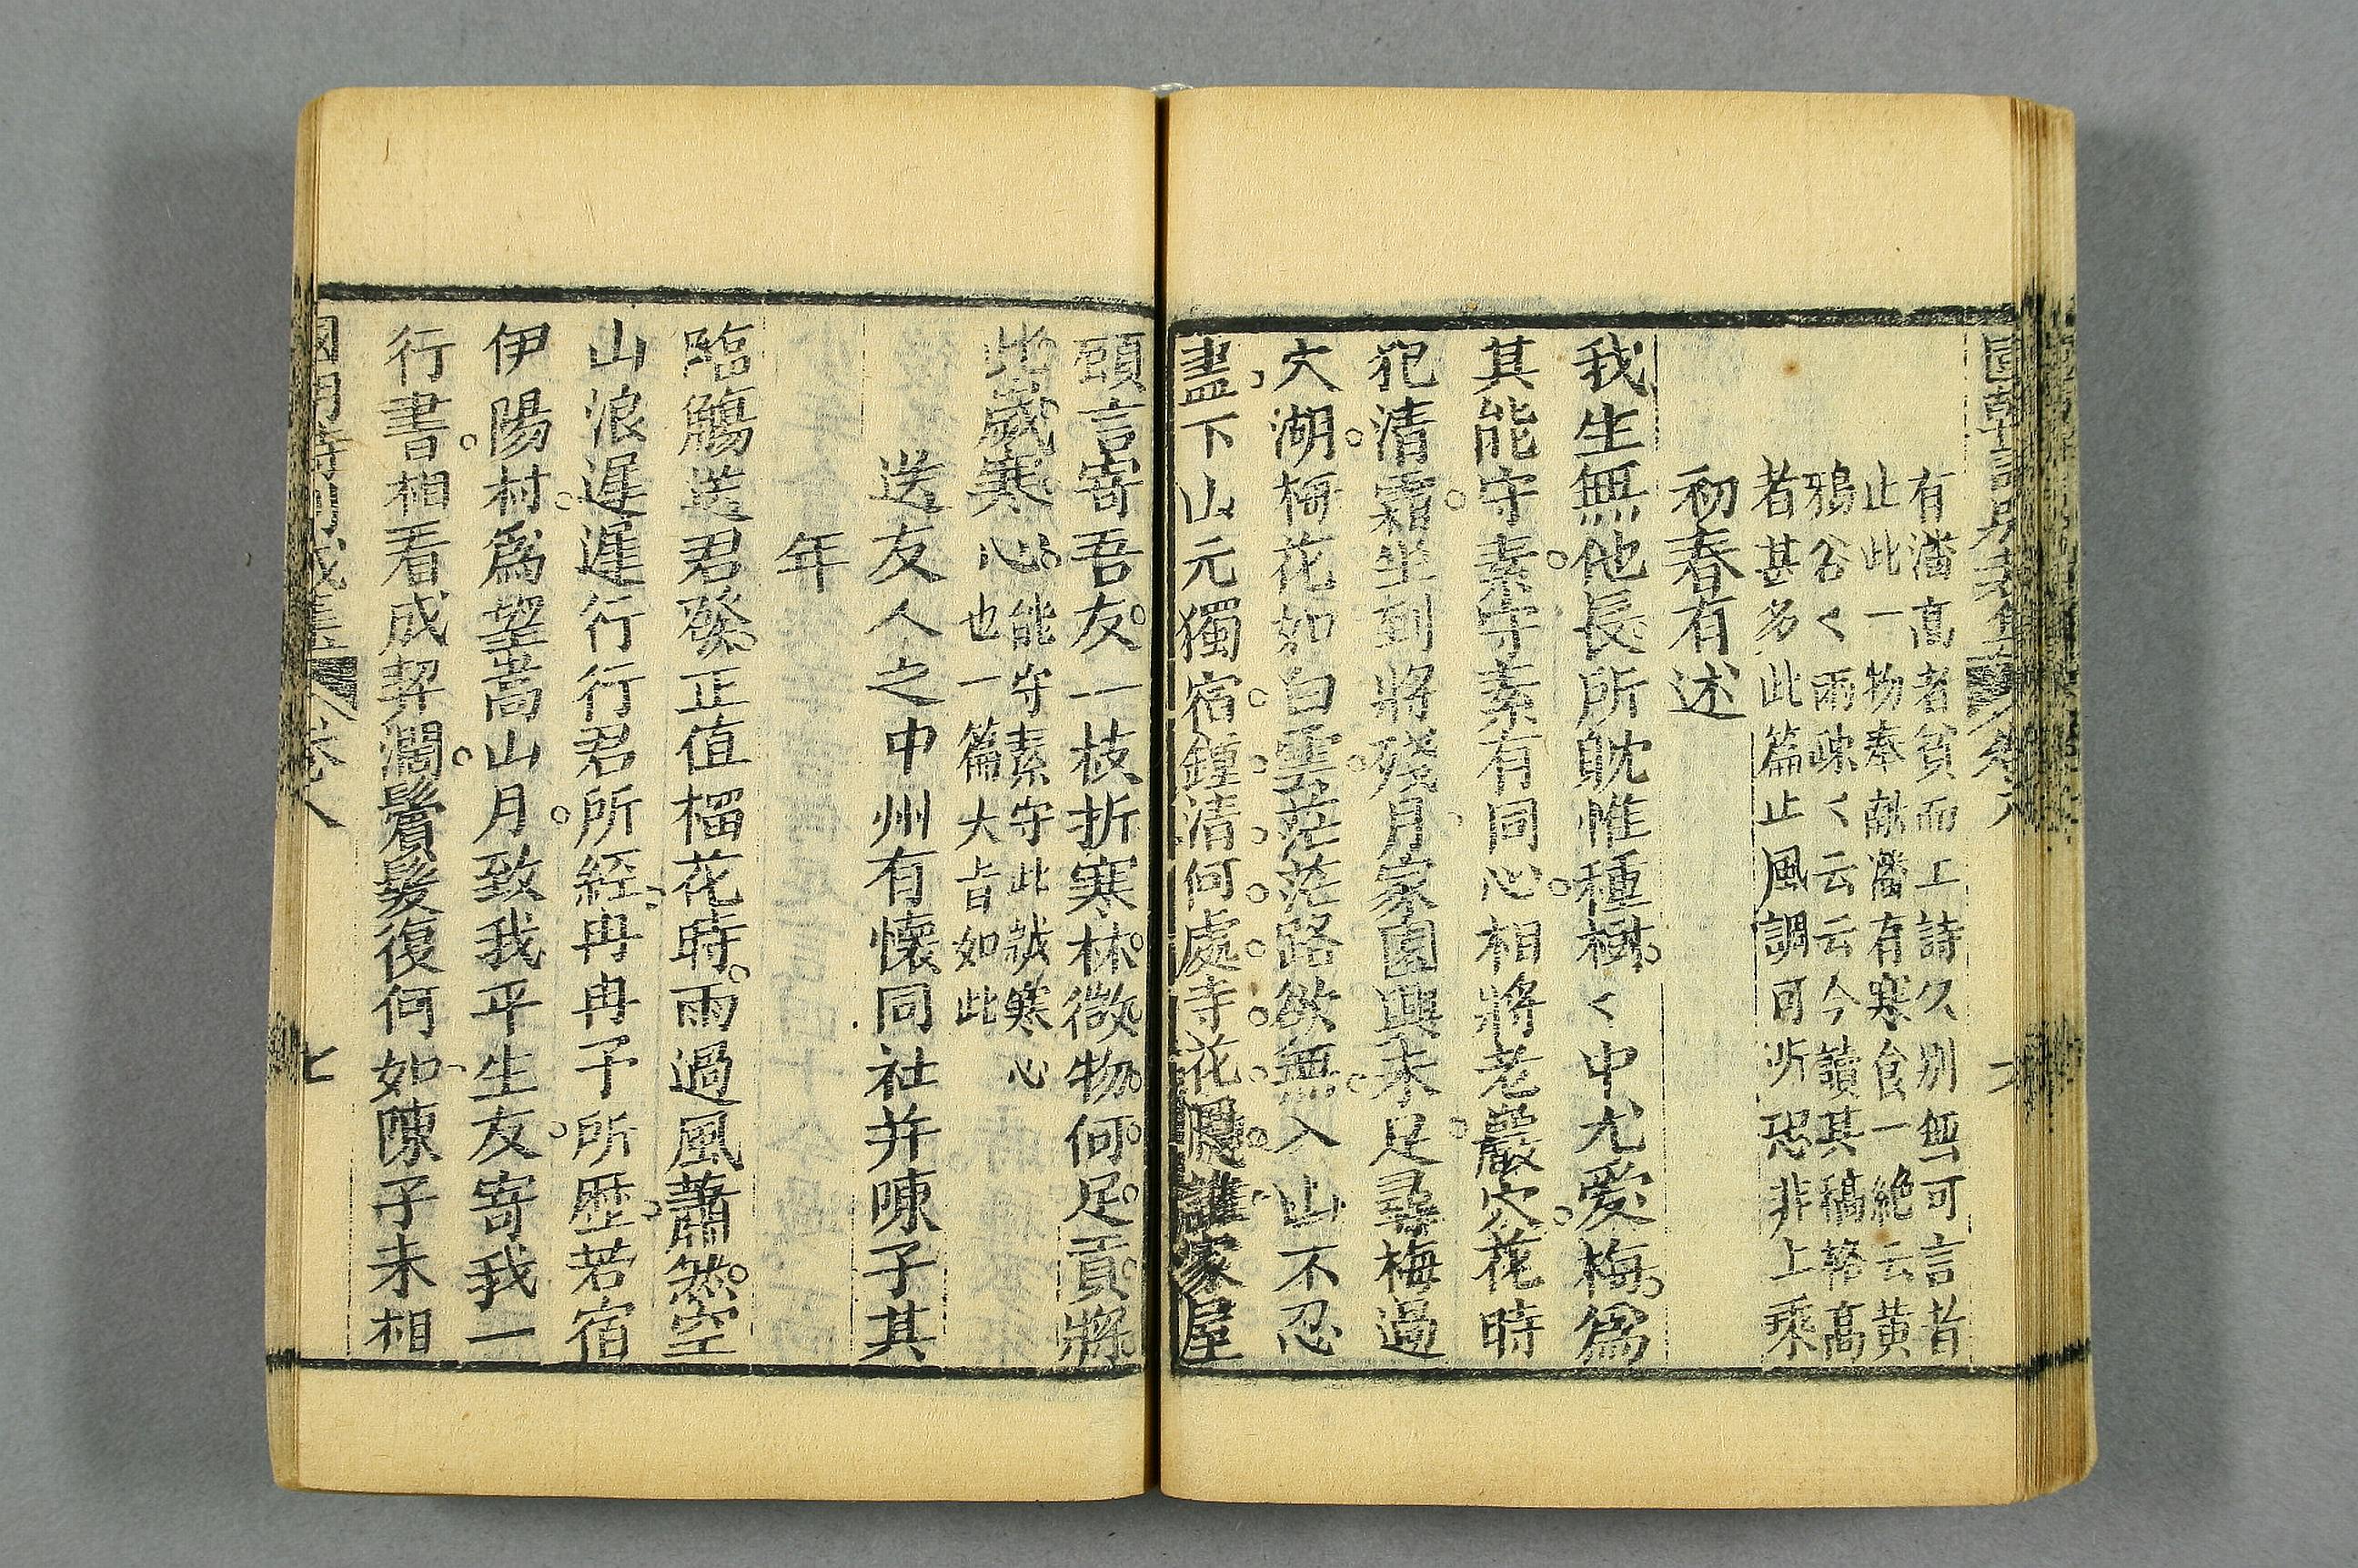 有潘高者貧而工詩久別無可言者
止此一物奉献潘有寒食一絶云黄
鴉谷く雨疎く云云今讀其稿格高
者甚多此篇止風調可所恐非上乘
初春有述
我生無他長所躭惟種樹く中尤爱梅為
其能守素守素有同心相將老巖穴花時
犯清霜坐到將殘月家園興未足尋梅過
大湖梅花如白雲茫茫路欲無入山不忍
盡下山元獨宿鐘清何處寺花優誰家屋
頭言寄吾友一枝折寒林微物何足貢將
此歲寒心
能守素守此歲寒心
也一篇大旨如此
送友人之中州有懷同社并陳子其
年
臨觴送君發正值榴花時雨過風蕭然空
山浪遲遲行行君所經冉冉予所歴若宿
伊陽村為望嵩山月致我平生友寄我一
行書相看成契濶鬢髮復何如陳子未相
卷八
七